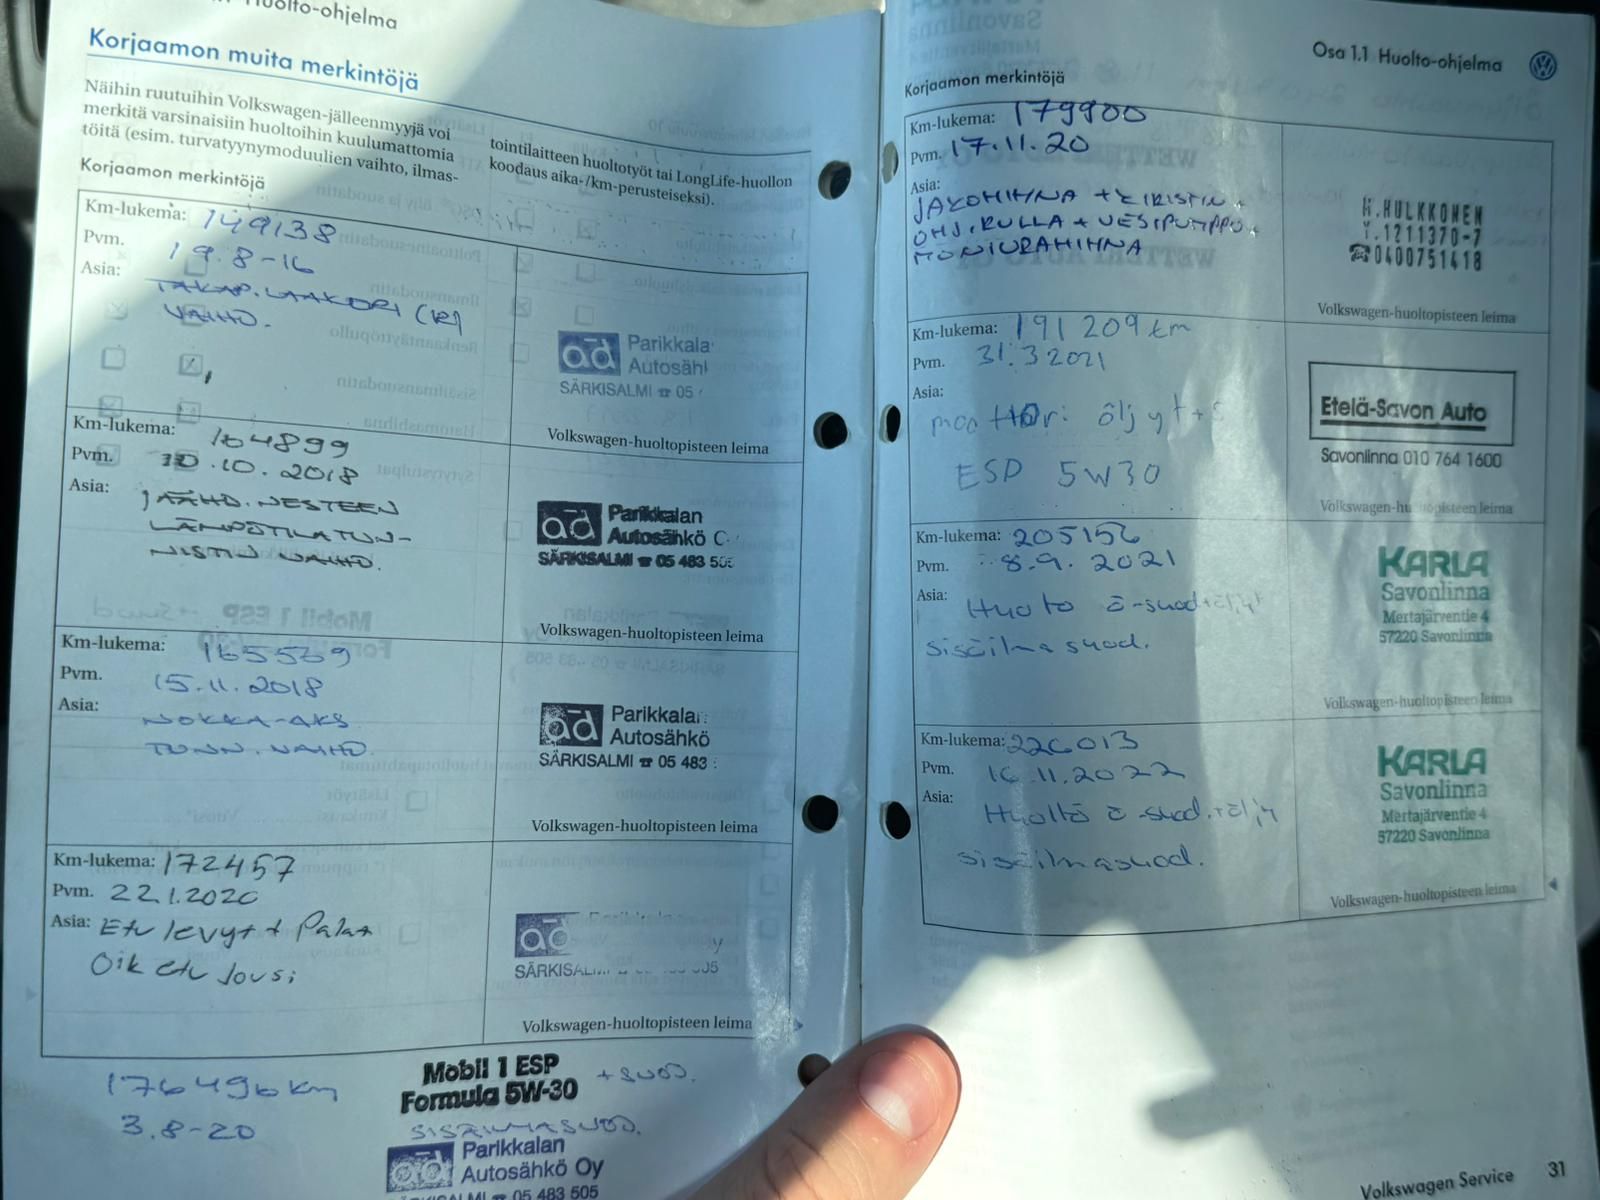 Huolto-ohjelma
Korjaamon muita merkintöjä
Näihin ruutuihin Volkswagen-jälleenmyyjä voi
merkitä varsinaisiin huoltoihin kuulumattomia
töitä (esim. turvatyynymoduulien vaihto, ilmas-
tointilaitteen huoltotyöt tai LongLife-huollon
koodaus aika-/km-perusteiseksi).
Korjaamon merkintöjä
Km-lukema: 149138
Pvm. 19.8-16
Asia: TAKAP. LAAKERI (R)
VAIHD.
ad Parikkala
Autosähk
SÄRKISALMI ☎ 05
Volkswagen-huoltopisteen leima
Km-lukema: 164899
Pvm. 10.10.2018
Asia: JÄÄHD.NESTEEN
LÄMPÖTILATUN-
NISTIN VAIHD.
ad Parikkalan
Autosähkö
SÄRKISALMI ☎ 05 483 505
Volkswagen-huoltopisteen leima
Km-lukema: 165569
Pvm. 15.11.2018
Asia: NOKKA-AKS
TUNN. VAIHD.
ad Parikkalan
Autosähkö
SÄRKISALMI ☎ 05 483
Volkswagen-huoltopisteen leima
Km-lukema: 172457
Pvm. 22.1.2020
Asia: Etu levyt + Palat
Oik etu Jousi
ad
Volkswagen-huoltopisteen leima
176496 km
3.8-20
Mobil 1 ESP
Formula 5W-30
+ SUOD.
SISÄILMASUOD.
ad Parikkalan
Autosähkö Oy
SÄRKISALMI ☎ 05 483 505
Osa 1.1 Huolto-ohjelma
Korjaamon merkintöjä
Km-lukema: 179900
Pvm. 17.11.20
Asia:
JAKOHIHNA + KIRISTIN +
OHJ.RULLA + VESIPUMPPU +
MONIURAHIHNA
H.HULKKONEN
Y.1211370-7
☎0400751418
Volkswagen-huoltopisteen leima
Km-lukema: 191 209 km
Pvm. 31.3 2021
Asia:
moottori öljyt + s
ESP 5W30
Etelä-Savon Auto
Savonlinna 010 764 1600
Volkswagen-huoltopisteen leima
Km-lukema: 205156
Pvm. 8.9. 2021
Asia: Huolto ö-suod+öljyt
sisäilmasuod.
KARLA
Savonlinna
Mertajärventie 4
57220 Savonlinna
Volkswagen-huoltopisteen leima
Km-lukema: 226013
Pvm. 16.11.2022
Asia: Huolto ö-suod.+öljy
sisäilmasuod.
KARLA
Savonlinna
Mertajärventie 4
57220 Savonlinna
Volkswagen-huoltopisteen leima
Volkswagen Service 31